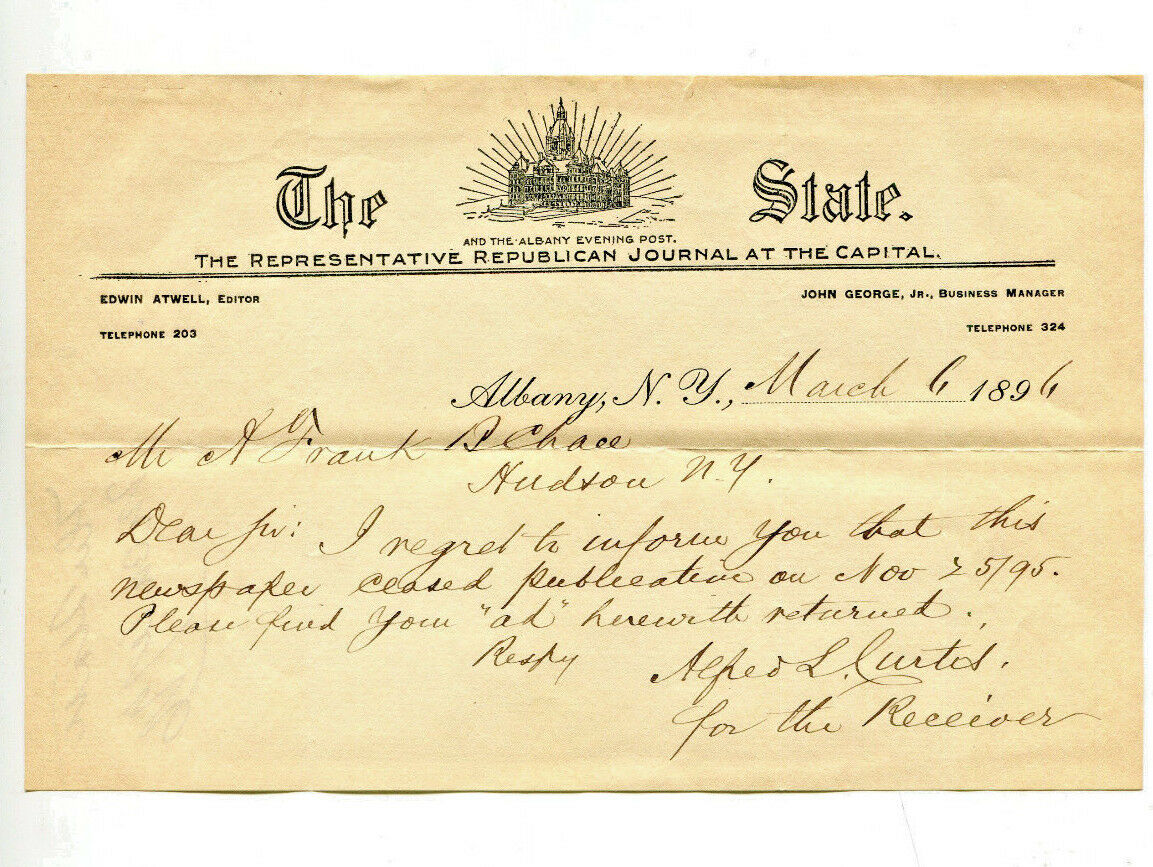 The State.
AND THE ALBANY EVENING POST.
THE REPRESENTATIVE REPUBLICAN JOURNAL AT THE CAPITAL.
EDWIN ATWELL, EDITOR
JOHN GEORGE, JR., BUSINESS MANAGER
TELEPHONE 203
TELEPHONE 324
Albany, N. Y., March 6 1896
Mr A Frank B Chace
Hudson N.Y.
Dear Sir: I regret to inform you that this
newspaper ceased publication on Nov 25/95.
Please find your "ad" herewith returned.
Respy Alfred L. Curtis.
for the Receiver